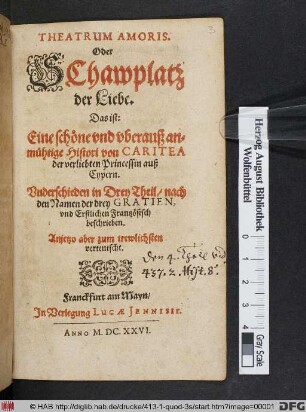 THEATRUM AMORIS.
Oder
Schawplatz
der Liebe.
Das ist:
Eine schöne vnd vberauß an-
mührige Histori von CARITEA
der verliebten Princessin auß
Cypern.
Vnderschieden in Drey Theil/ nach
den Namen der drey GRATIEN,
vnd Erstlichen Frantzösisch
beschrieben.
Anjetzo aber zum trewlichsten
verteutscht.
Franckfurt am Mayn/
In Verlegung LUCÆ JENNISII.
ANNO M. DC. XXVI.
3
Herzog August Bibliothek
Wolfenbüttel
Gray Scale
© HAB http://diglib.hab.de/drucke/413-1-quod-3s/start.htm?image=00001
DFG